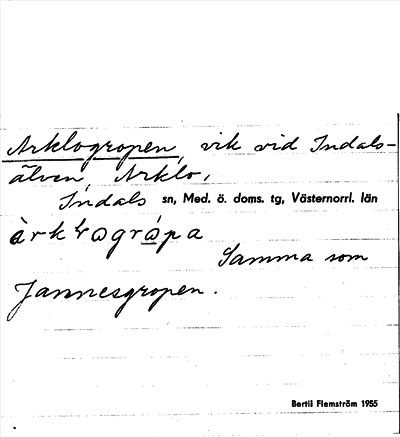 Arklogropen, vik vid Indals-
älven, Arklo,
Indals sn, Med. ö. doms. tg, Västernorrl. län
àrkɫogrópa
Samma som
Jannesgropen.
Bertil Flemström 1955